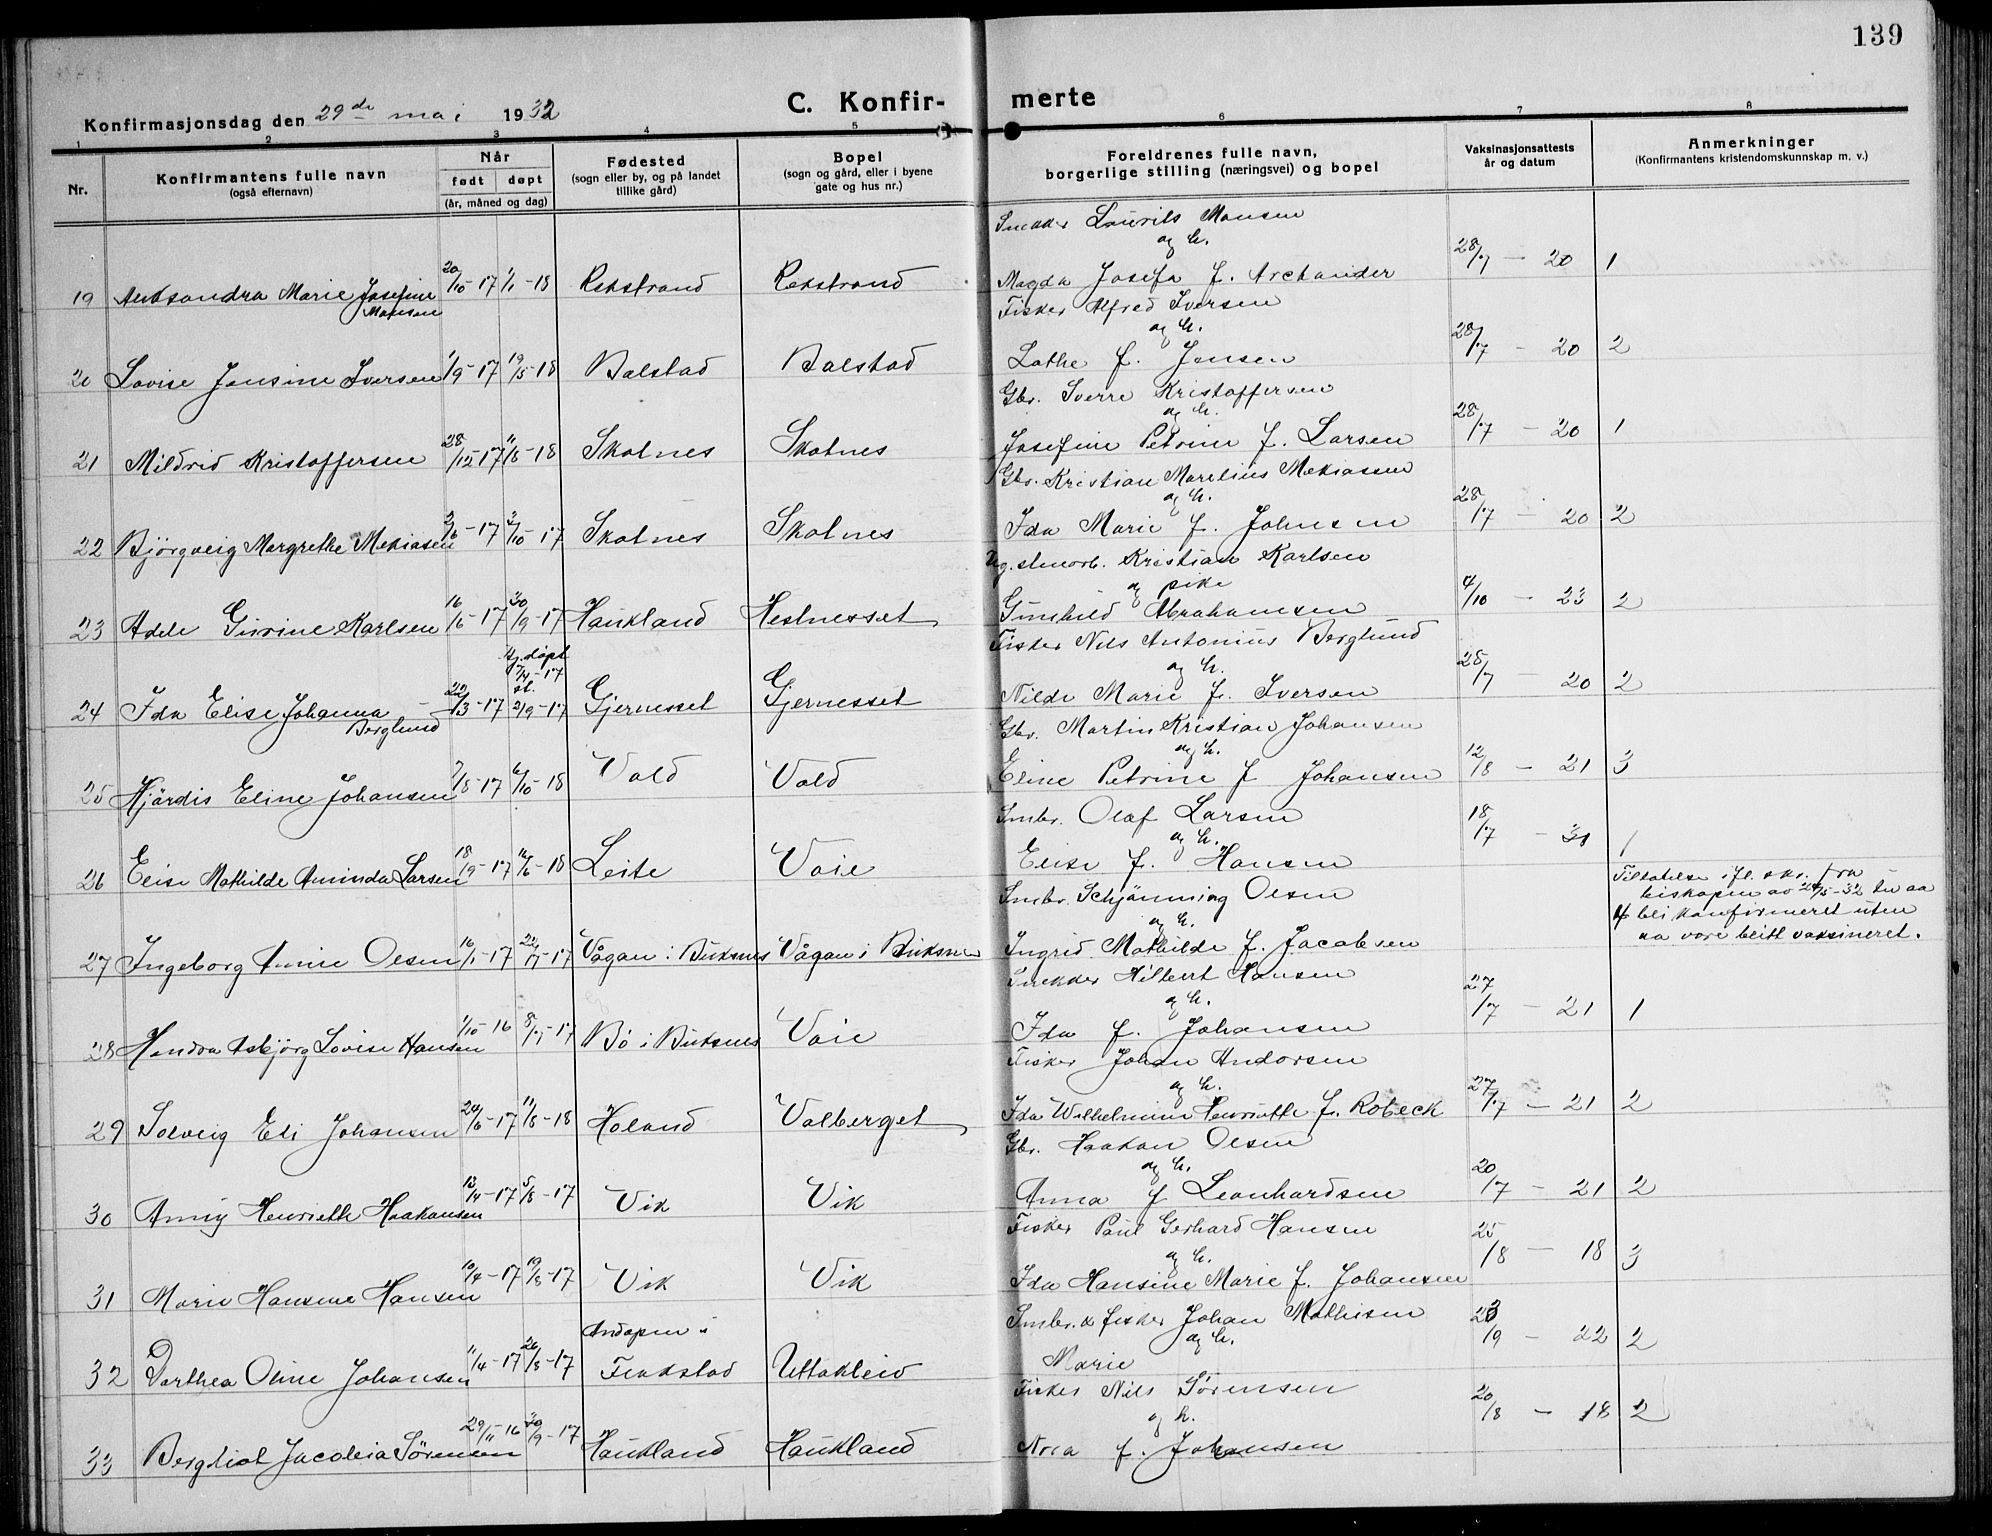 139
Konfirmasjonsdag den 29de mai 1932
C. Konfir- merte
1 2 3 4 5 6 7 8
Nr.
Konfirmantens fulle navn
(også efternavn)
Når
født døpt
(år, måned og dag)
Fødested
(sogn eller by, og på landet
tillike gård)
Bopel
(sogn og gård, eller i byene
gate og hus nr.)
Foreldrenes fulle navn,
borgerlige stilling (næringsvei) og bopel
Vaksinasjonsattests
år og datum
Anmerkninger
(Konfirmantens kristendomskunnskap m. v.)
Snekker Laurits Monsen
og h.
19 Aleksandra Marie Josefine Monsen 20/10-17 1/1-18 Rekstrand Rekstrand Magda Josefa f. Archander 28/7 - 20 1
Fisker Alfred Iversen
og h.
20 Lovise Jensine Iversen 1/9-17 19/5-18 Balstad Balstad Lothe f. Jensen 28/7 - 20 2
Gbr. Sverre Kristoffersen
og h.
21 Mildrid Kristoffersen 28/12-17 11/8-18 Skotnes Skotnes Josefine Petrine f. Larsen 28/7 - 20 1
Gbr. Kristian Marelius Mekiassen
og h.
22 Björgveig Margrethe Mekiasen 2/6-17 2/10-17 Skotnes Skotnes Ida Marie f. Johnsen 28/7 - 20 2
Ug. stenarb. Kristian Karlsen
og pike
23 Adele Gurine Karlsen 16/6-17 30/9-17 Haukland Hestnesset Gunhild Abrahamsen 4/10 - 23 2
Fisker Nils Antonius Berglund
og h.
24 Ida Elise Johanna Berglund 22/3-17 hj. døpt 7/4-17 st. 2/9-17 Gjernesset Gjernesset Nilde Marie f. Iversen 28/7 - 20 2
Gbr. Martin Kristian Johansen
og h.
25 Hjördis Eline Johansen 7/8-17 6/10-18 Vold Vold Eline Petrine f Johansen 12/8 - 21 3
Smbr. Olaf Larsen
og h.
26 Elise Mathilde Aminda Larsen 18/9-17 16/6-18 Leite Voie Elise f. Hansen 18/7 - 31 1
Smbr. Schjønning Olsen
og h.
27 Ingeborg Annie Olsen 16/1-17 22/7-17 Vågan i Buksnes Vågan i Buksnes Ingrid Mathilde f. Jacobsen
Tillatelse i fl. skr. fra
biskopen av 24/5-32 til aa
bli konfirmeret uten
aa være blitt vaksineret.
Snekker Hilbert Hansen
og h.
28 Hendva Asbjörg Lovise Hansen 1/10-16 8/7-17 Bö i Buksnes Voie Ida f. Johansen 27/7 - 21 1
Fisker Johan Andorsen
og h.
29 Solveig Eli Johansen 24/6-17 11/8-18 Holand Valberget Ida Wilhelmine Henriette f. Robeck 27/7 - 21 2
Gbr. Haakon Olsen
og h.
30 Anny Henriette Haakonsen 13/4-17 5/8-17 Vik Vik Anna f Leonhardsen 20/7 - 21 2
Fisker Paul Gerhard Hansen
og h.
31 Marie Hansine Hansen 10/4-17 19/8-17 Vik Vik Ida Hansine Marie f. Johansen 25/8 - 18 3
Smbr. & fisker Johan Mathisen
og h.
32 Dorthea Oline Johansen 11/4-17 26/8-17 Andopen i Flakstad Uttakleiv Marie 23/9 - 22 2
Fisker Nils Sörensen
og h.
33 Bergliot Jacobia Sörensen 29/11-16 30/9-17 Haukland Haukland Nora f. Johansen 20/8 - 18 2